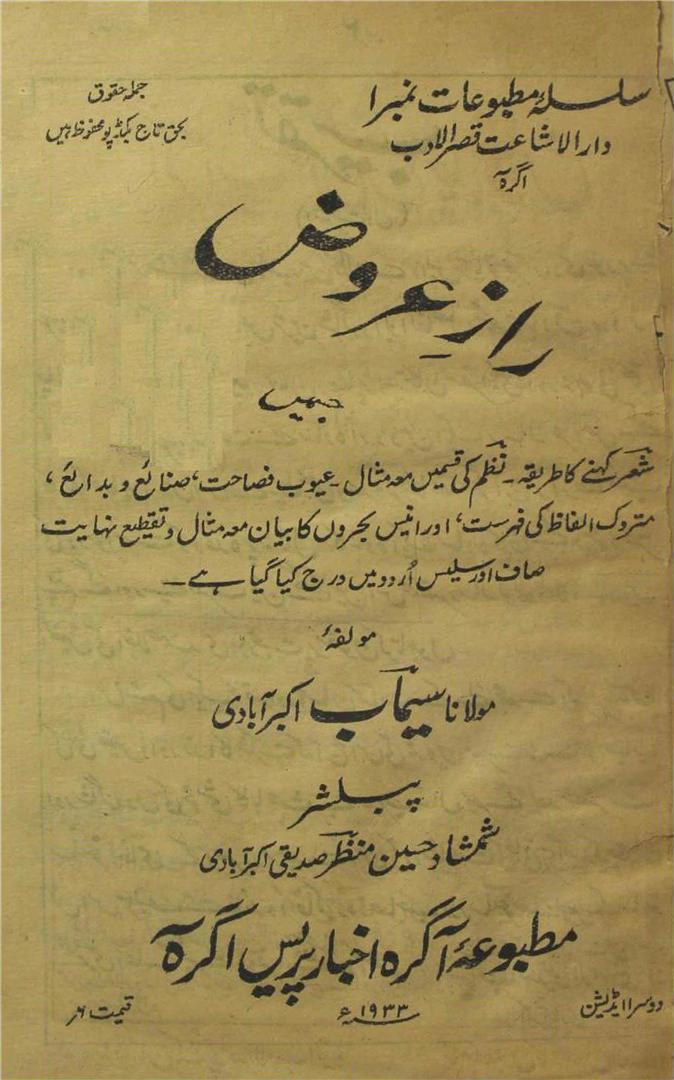 سلسلۂ مطبوعات نمبر ۱
دارالاشاعت قصرالادب
آگرہ
جملہ حقوق
بحق تاج بکڈپو محفوظ ہیں
رازِ عروض
جسمیں
شعر کہنے کا طریقہ۔ نظم کی قسمیں معہ مثال۔ عیوب فصاحت، صنائع و بدائع،
متروک الفاظ کی فہرست، اور انیس بحروں کا بیان معہ مثال و تقطیع نہایت
صاف اور سلیس اُردو میں درج کیا گیا ہے۔
مولفۂ
مولانا سیماب اکبرآبادی
پبلشر
شمشاد حسین منظر صدیقی اکبرآبادی
مطبوعۂ آگرہ اخبار پریس آگرہ
دوسرا ایڈیشن
۱۹۳۳ء
قیمت ۶؍